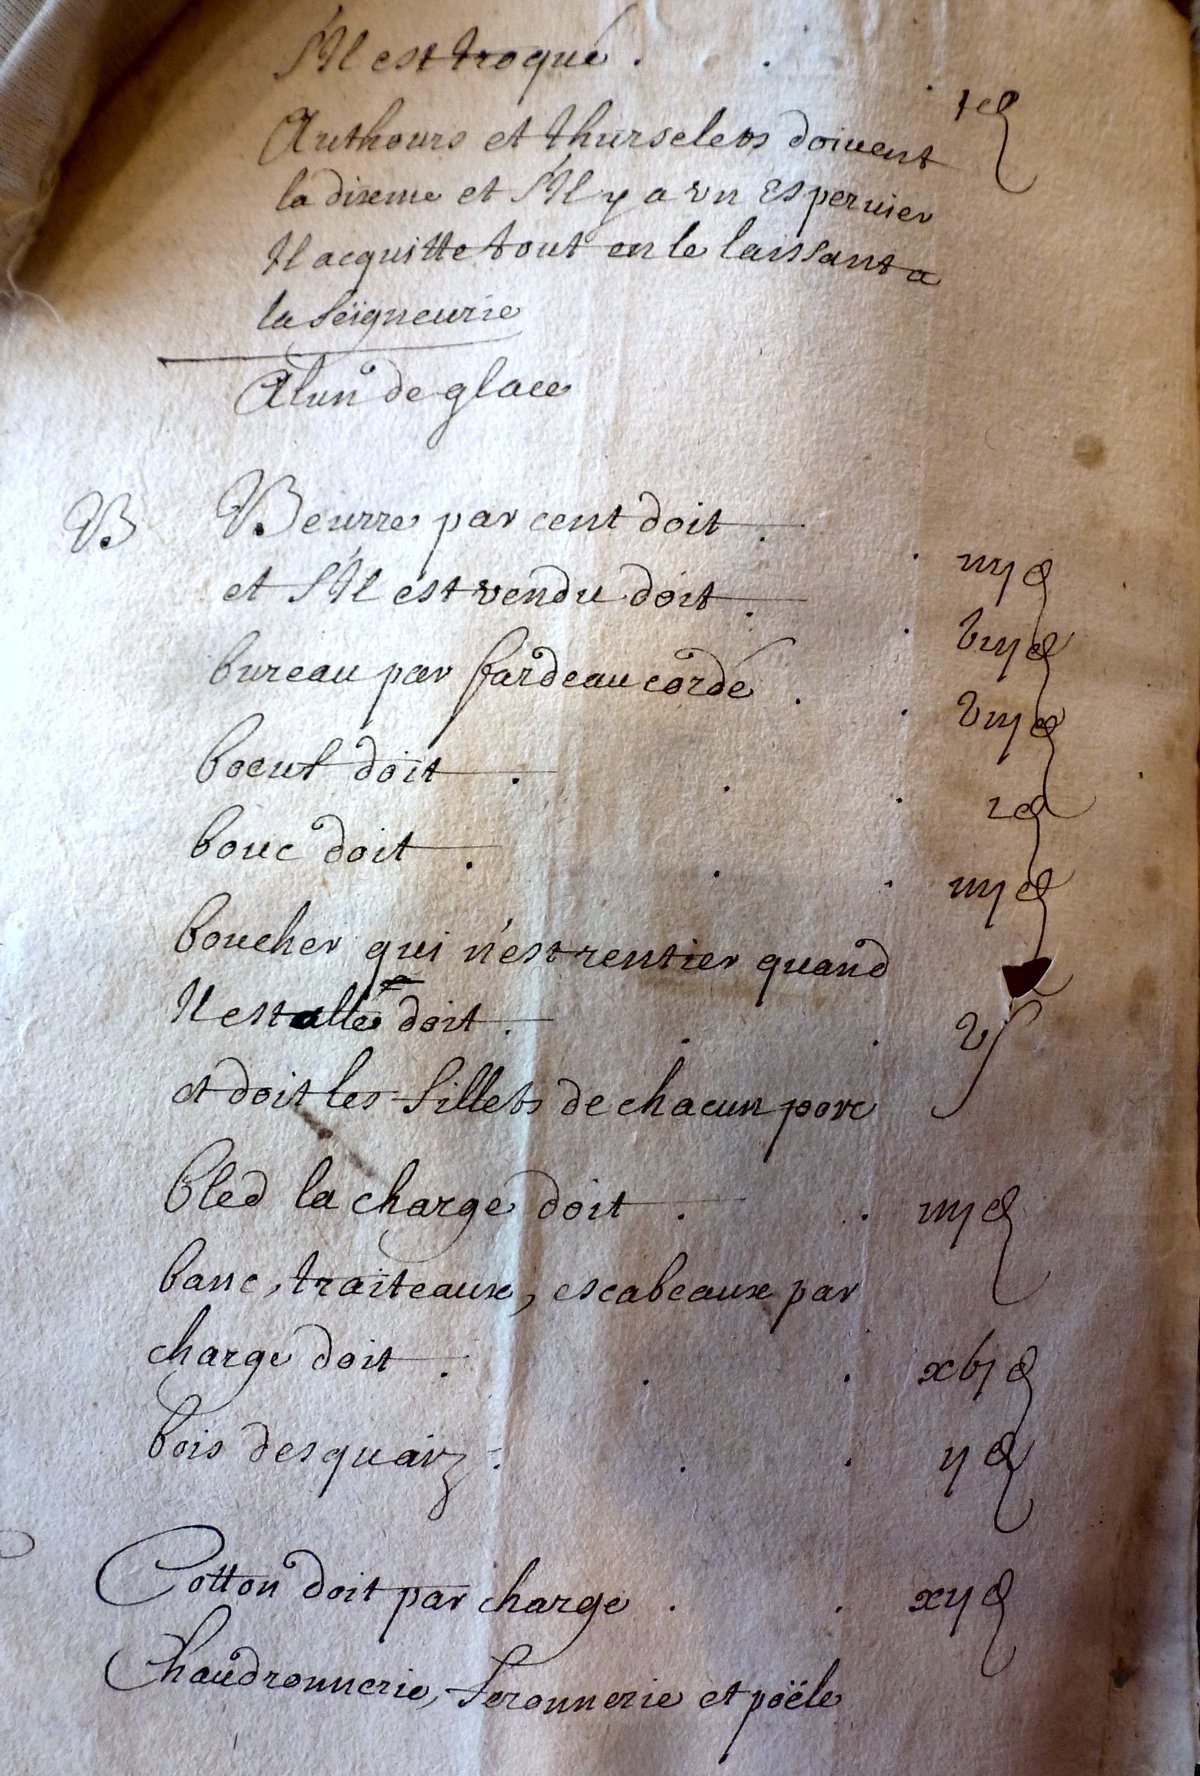 s'Il est troqué . . . 1 d
Authours et thurselets doivent
la dixeme et s'Il y a vn Espervier
Il acquitte tout en le laissant a
la seigneurie
Alun de glace
B Beurre par cent doit . . iiij d
et s'Il est vendu doit . . viij d
bureau par fardeau cordé . . viij d
boeuf doit . . . 1 d
bouc doit . . . iiij d
boucher qui n'est rentier quand
Il est allé doit . . . v s
et doit les fillets de chacun porc
bled la charge doit . . iiij d
banc, traiteaux, escabeaux par
charge doit . . . xvj d
bois desquarz . . . ij d
Cotton doit par charge . . xij d
Chaudronnerie, feronnerie et poële